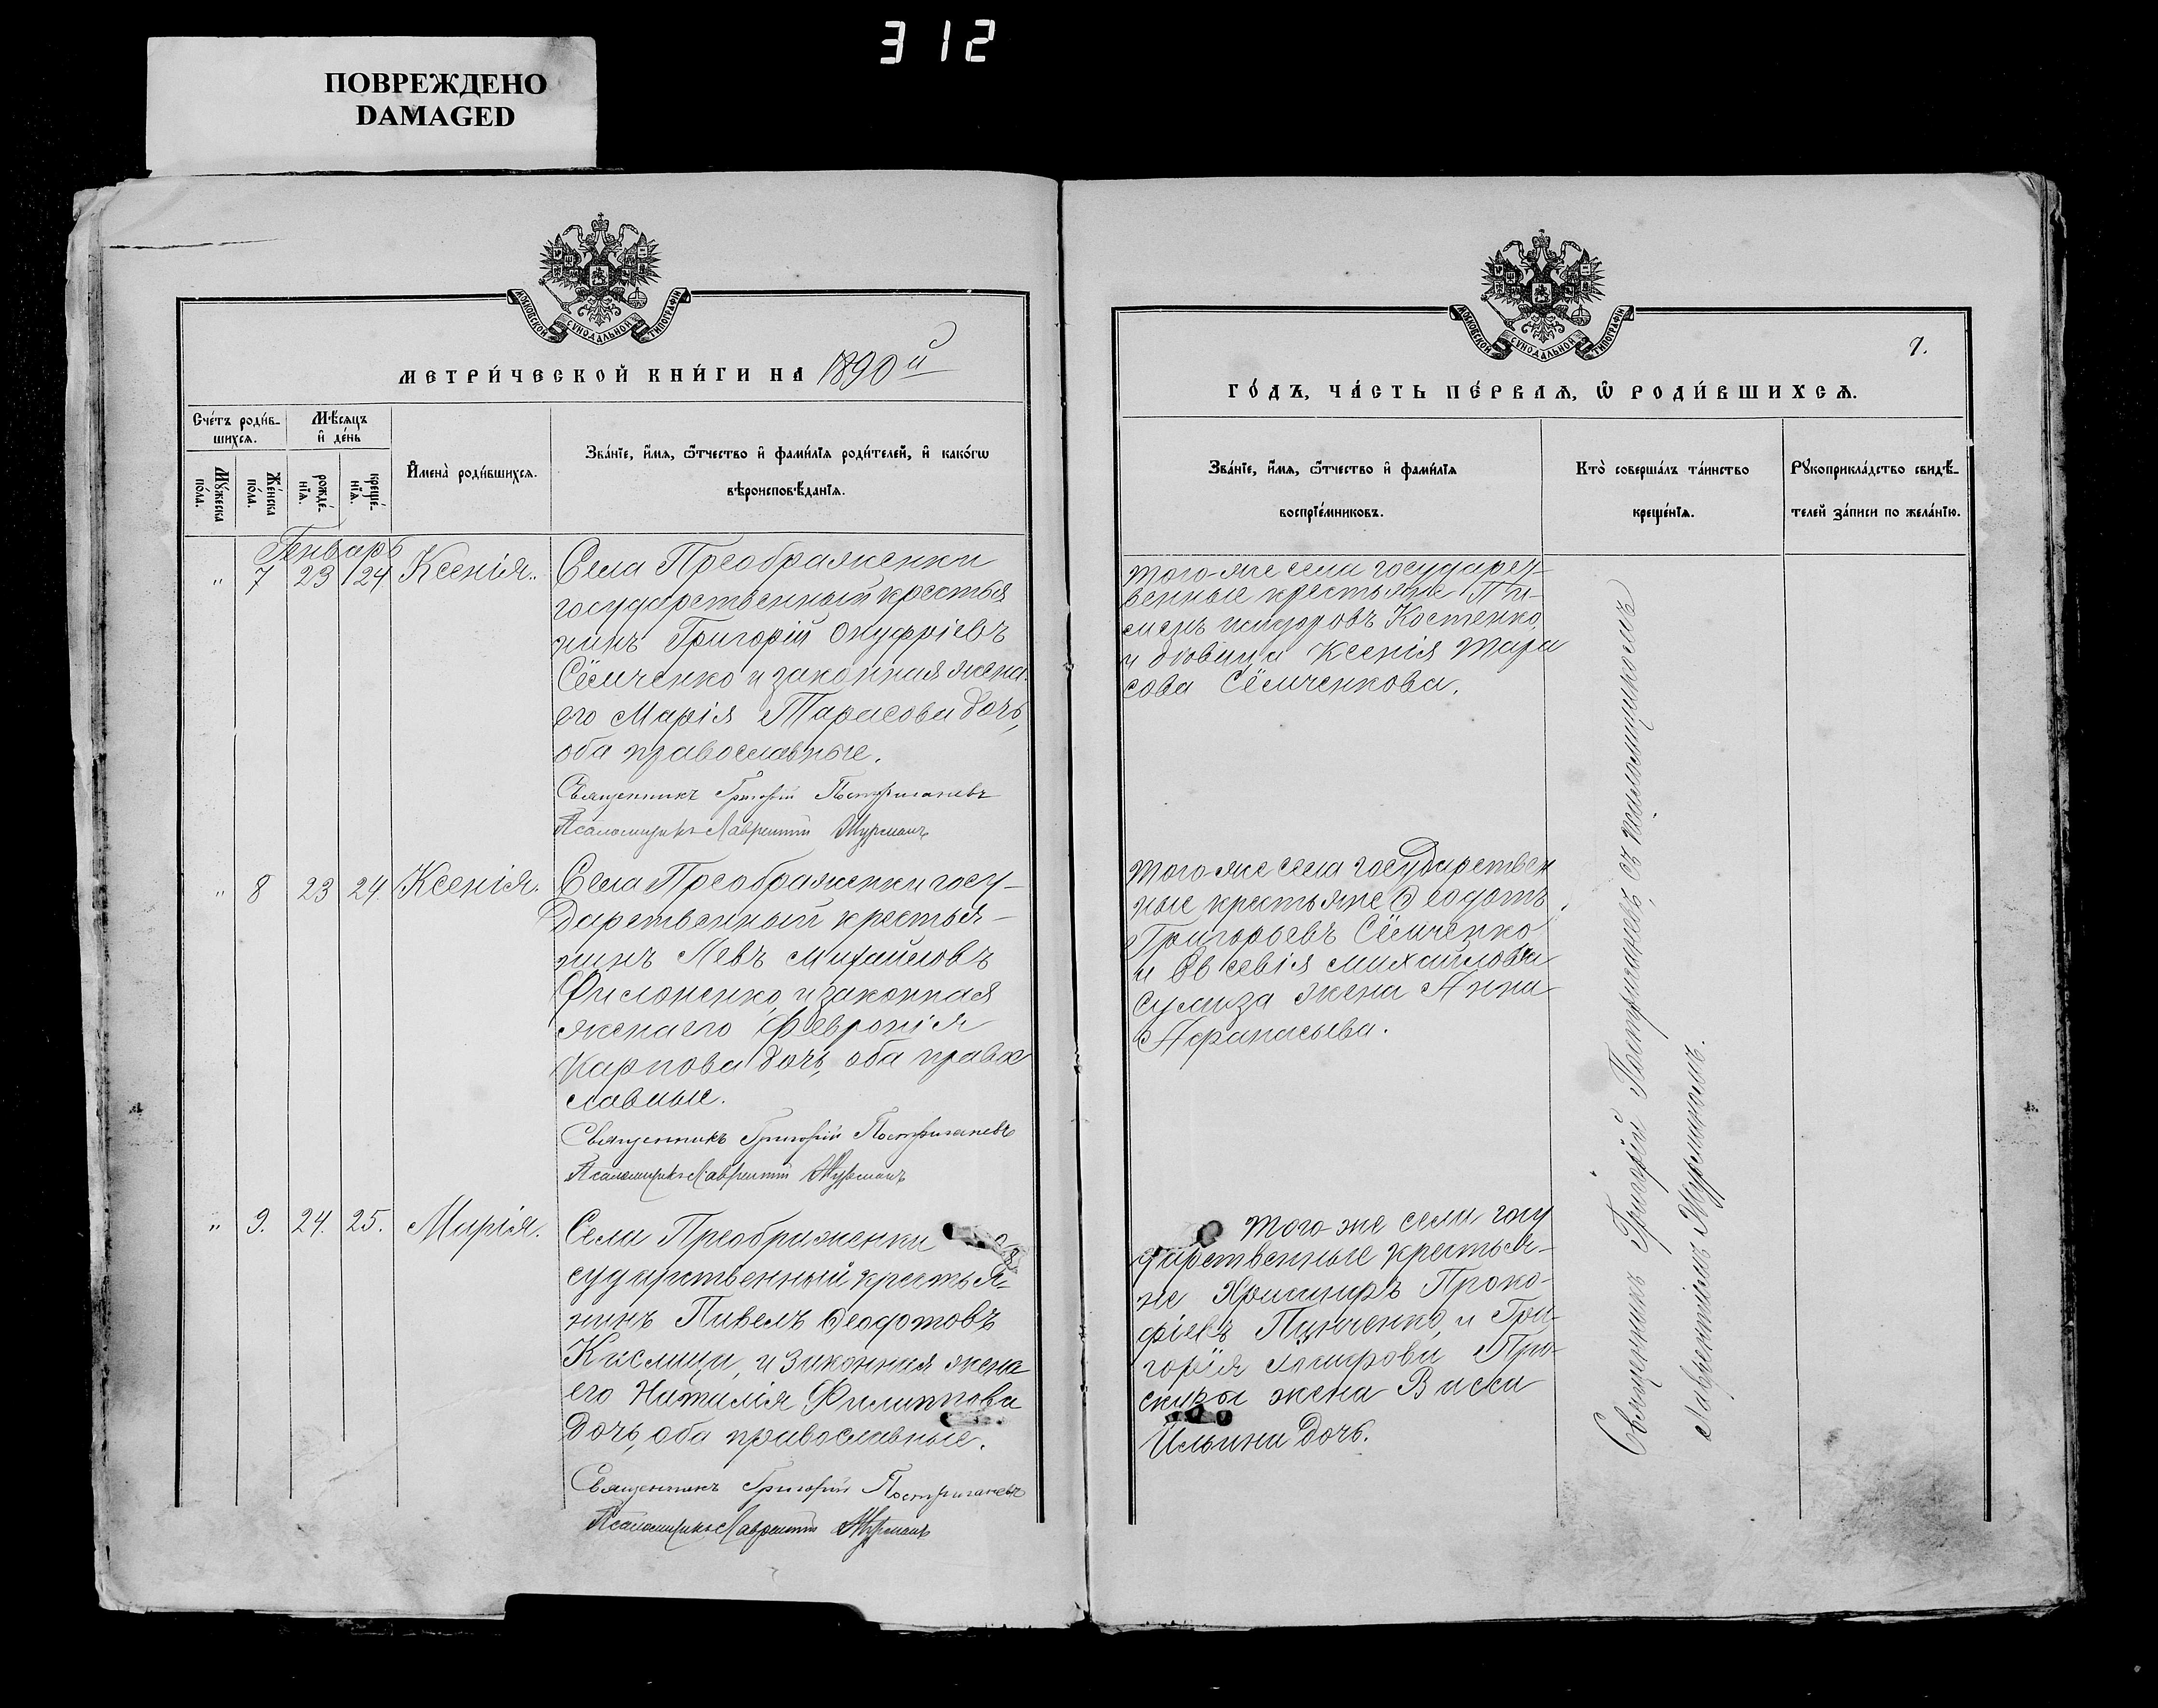 312
ПОВРЕЖДЕНО
DAMAGED
МОСКОВСКОЙ СѴНОДАЛЬНОЙ ТИПОГРАФІИ
МЕТРИ́ЧЕСКОЙ КНИ́ГИ НА 1890й
Сче́тъ роди́в-
шихся.
Мѣ́сяцъ
и҆ де́нь
Мꙋ́жеска
по́ла.
Же́нска
по́ла.
рожде́-
нїя.
креще́-
нїя.
И҆мена̀ роди́вшихся.
Зва́нїе, и҆́мя, ѻ҆́тчество и҆ фами́лїя роди́телей, и҆ како́гѡ
вѣроисповѣ́данїя.
Генварь
" 7 23 24 Ксенія.
Села Преображенки
государственный крестья
нинъ Григорій Онуфріевъ
Сёмченко и законная жена
его Марія Тарасова дочь,
оба православные.
Священникъ Григорій Постригачевъ
Псаломщикъ Лаврентій Мурманъ
" 8 23 24. Ксенія.
Села Преображенки госу-
дарственный крестья-
нинъ Левъ Михайловъ
Филоненко, и законная
жена его Февронія
Карпова дочь, оба право
славные.
Священникъ Григорій Постригачевъ
Псаломщикъ Лаврентій Мурманъ
" 9. 24. 25. Марія.
Села Преображенки го
сударственный крестья-
нинъ Павелъ Ѳеодотовъ
Кислица, и законная жена
его Наталія Филиппова
дочь, оба православные.
Священникъ Григорій Постригачевъ
Псаломщикъ Лаврентій Мурманъ
МОСКОВСКОЙ СѴНОДАЛЬНОЙ ТИПОГРАФІИ
7.
ГО́ДЪ, ЧА́СТЬ ПЕ́РВАЯ, Ѡ҆ РОДИ́ВШИХСЯ.
Зва́нїе, и҆́мя, ѻ҆́тчество и҆ фами́лїя
воспрїе́мниковъ.
Кто̀ соверша́лъ та́инство
креще́нїя.
Рꙋкоприкла́дство свидѣ́-
телей за́писи по жела́нїю.
того-же села государст-
венные крестьяне
Костенко,
и Ксенія Тара
сова Сёмченкова.
того-же села государствен
ные крестьяне Ѳеодотъ
Григорьевъ Сёмченко
и Евсевія Михайлова
жена Анна
Афанасьева.
того же села госу
дарственные крестья-
не Проко-
фіевъ и Гри-
горія Про-
жена Васса
Ильина дочь.
Священникъ Григорій Постригачевъ, съ псаломщикомъ
Лаврентіемъ Мурманомъ.